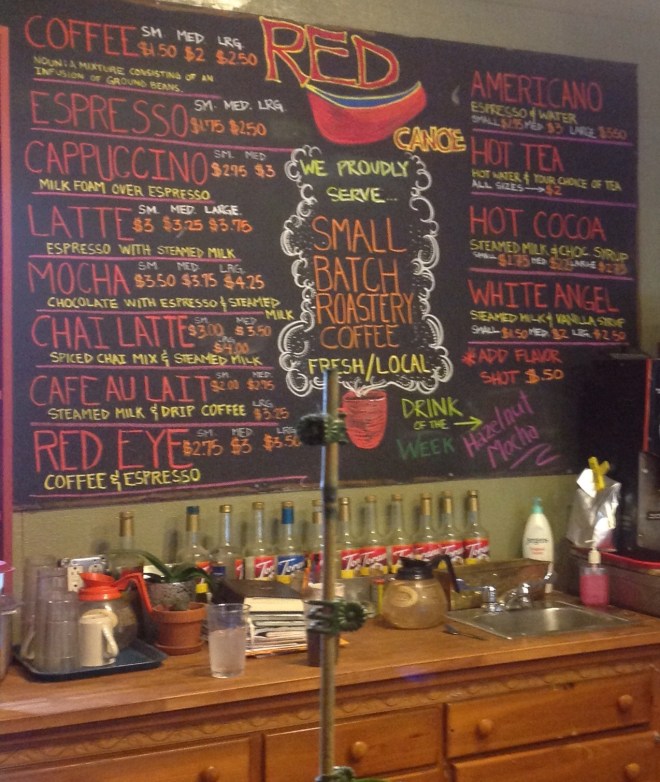 COFFEE SM MED LRG
$1.50 $2 $2.50
NOUN: A MIXTURE CONSISTING OF AN
INFUSION OF GROUND BEANS.
ESPRESSO SM. MED. LRG.
$1.75 $2.50
CAPPUCCINO SM. MED
$2.95 $3
MILK FOAM OVER ESPRESSO
LATTE SM. MED. LARGE
$3 $3.25 $3.75
ESPRESSO WITH STEAMED MILK
MOCHA SM MED LRG.
$3.50 $3.75 $4.25
CHOCOLATE WITH ESPRESSO & STEAMED
MILK
CHAI LATTE SM. MED.
$3.00 $3.50
LRG
$4.00
SPICED CHAI MIX & STEAMED MILK
CAFE AU LAIT SM MED
$2.00 $2.75
STEAMED MILK & DRIP COFFEE LRG $3.25
RED EYE SM. MED LRG
$2.75 $3 $3.50
COFFEE & ESPRESSO
RED
CANOE
WE PROUDLY
SERVE...
SMALL
BATCH
ROASTERY
COFFEE
FRESH/LOCAL
DRINK
OF THE
WEEK
Hazelnut
Mocha
AMERICANO
ESPRESSO & WATER
SMALL MED $3 LARGE $3.50
HOT TEA
HOT WATER & YOUR CHOICE OF TEA
ALL SIZES $2
HOT COCOA
STEAMED MILK & CHOC SYRUP
SMALL $1.75 MED LARGE $2.75
WHITE ANGEL
STEAMED MILK & VANILLA SYRUP
SMALL $1.50 MED. $2 LRG. $2.50
*ADD FLAVOR
SHOT $.50